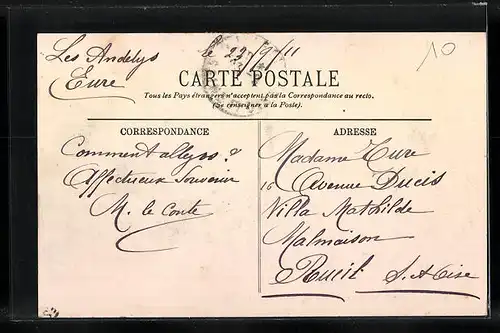 Les Andelys le 22/9/11
Eure
10
CARTE POSTALE
Tous les Pays étrangers n'acceptent pas la Correspondance au recto.
(Se renseigner à la Poste).
CORRESPONDANCE
Comment allez vous ?
Affectueux Souvenir
M. le Conte
ADRESSE
Madame Cure
16 Avenue Ducis
Villa Mathilde
Malmaison
Rueil S. et Oise